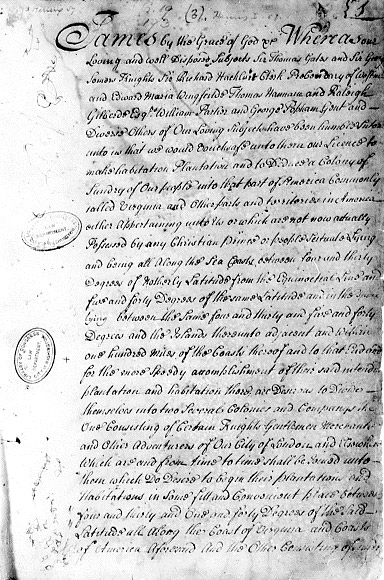 (3)
James by the Grace of God &c Whereas our
Loving and well Disposed Subjects Sir Thomas Gates and Sir George
Somers Knights Sir Richard Hackluit Clerk Prebendary of Westm
and Edward Maria Wingfeilde Thomas Hannam and Raleigh
Gilberde Esqrs William Parker and George Popham Gent and
Diverse Others of Our Loving Subjects have been humble Suitors
unto us that we would vouchsafe unto them our Licence to
make habitation Plantation and to Deduce a Colony of
Sundry of Our people into that part of America Commonly
called Virginia and Other parts and territories in America
either Appertaining unto Us or which are not now actually
Possessed by any Christian prince or people Scituate Lying
and being all Along the Sea Coasts between four and thirty
Degrees of Notherly Latitude from the Equinoctial Line and
five and forty Degrees of the same Latitude and in the
lying between the Same four and thirty and five and forty
Degrees and the Islands thereunto adjacent and Within
one hundred miles of the Coasts thereof and to that End and
for the more Speedy accomplishment of their said intended
plantation and habitation there are Desirous to Divide
themselves into two Several Colonies and Companys the
One Consisting of Certain Knights Gentlemen Merchants
and Other Adventurers of Our City of London and Elsewhere
Which are and from time to time shall be Joined unto
them which Do Desire to begin their plantations and
habitations in Some fitt and Convenient place between
four and thirty and One and forty Degrees of the Said
Latitude all Along the Coast of Virginia and Coasts
of America Aforesaid And the Other Consisting of